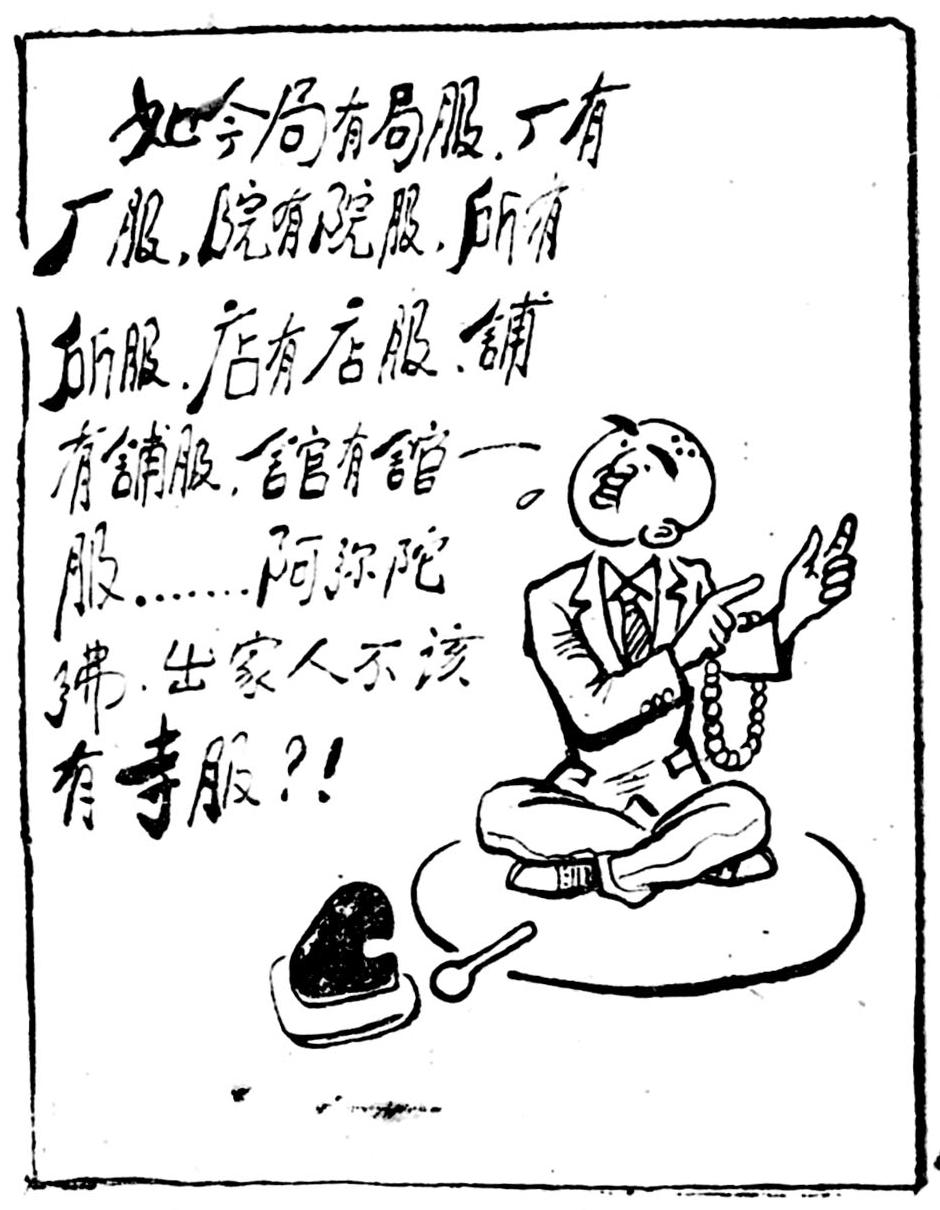 如今局有局服、厂有
厂服、院有院服、所有
所服、店有店服、舖
有舖服、舘有舘
服.......阿弥陀
佛、出家人不该
有寺服?!